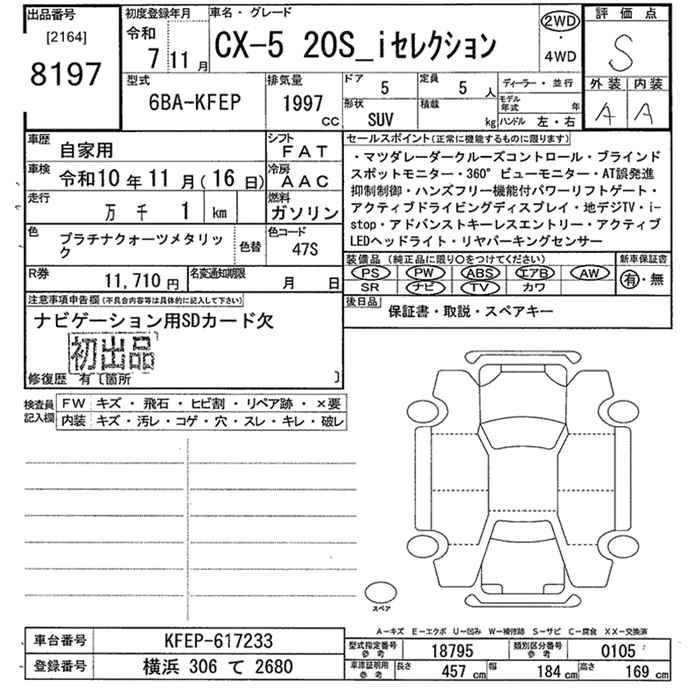 出品番号
[2164]
8197
初度登録年月
令和
7 11 月
車名・グレード
CX-5 20S_iセレクション
2WD
・
4WD
評価点
S
外装 内装
A A
型式
6BA-KFEP
排気量
1997
CC
ドア
5
定員
5 人
ディーラー・並行
形状
SUV
積載
kg
モデル
年式 年
ハンドル 左・右
車歴
自家用
シフト
FAT
車検
令和10 年 11 月(16 日)
冷房
AAC
走行
万 千 1 km
燃料
ガソリン
色
プラチナクォーツメタリッ
ク
色替
色コード
47S
R券
11,710 円
名変通知期限
月 日
セールスポイント(正常に機能するものに限ります)
・マツダレーダークルーズコントロール・ブラインド
スポットモニター・360°ビューモニター・AT誤発進
抑制制御・ハンズフリー機能付パワーリフトゲート・
アクティブドライビングディスプレイ・地デジTV・i-
stop・アドバンストキーレスエントリー・アクティブ
LEDヘッドライト・リヤパーキングセンサー
装備品(純正品に限り○をつけてください)
PS PW ABS エアB AW
SR ナビ TV カワ
新車保証書
有・無
後日品
保証書・取説・スペアキー
注意事項申告欄(不具合内容等は具体的に記入して下さい)
ナビゲーション用SDカード欠
初出品
修復歴 有〔箇所 〕
検査員
記入欄
FW キズ・飛石・ヒビ割・リペア跡・×要
内装 キズ・汚レ・コゲ・穴・スレ・キレ・破レ
スペア
A－キズ E－エクボ U－凹み W－補修跡 S－サビ C－腐食 XX－交換済
車台番号 KFEP-617233
登録番号 横浜 306 て 2680
型式指定番号
参考
18795
類別区分番号
参考
0105
車庫証明用
参考
長さ 457 cm 幅 184 cm 高さ 169 cm